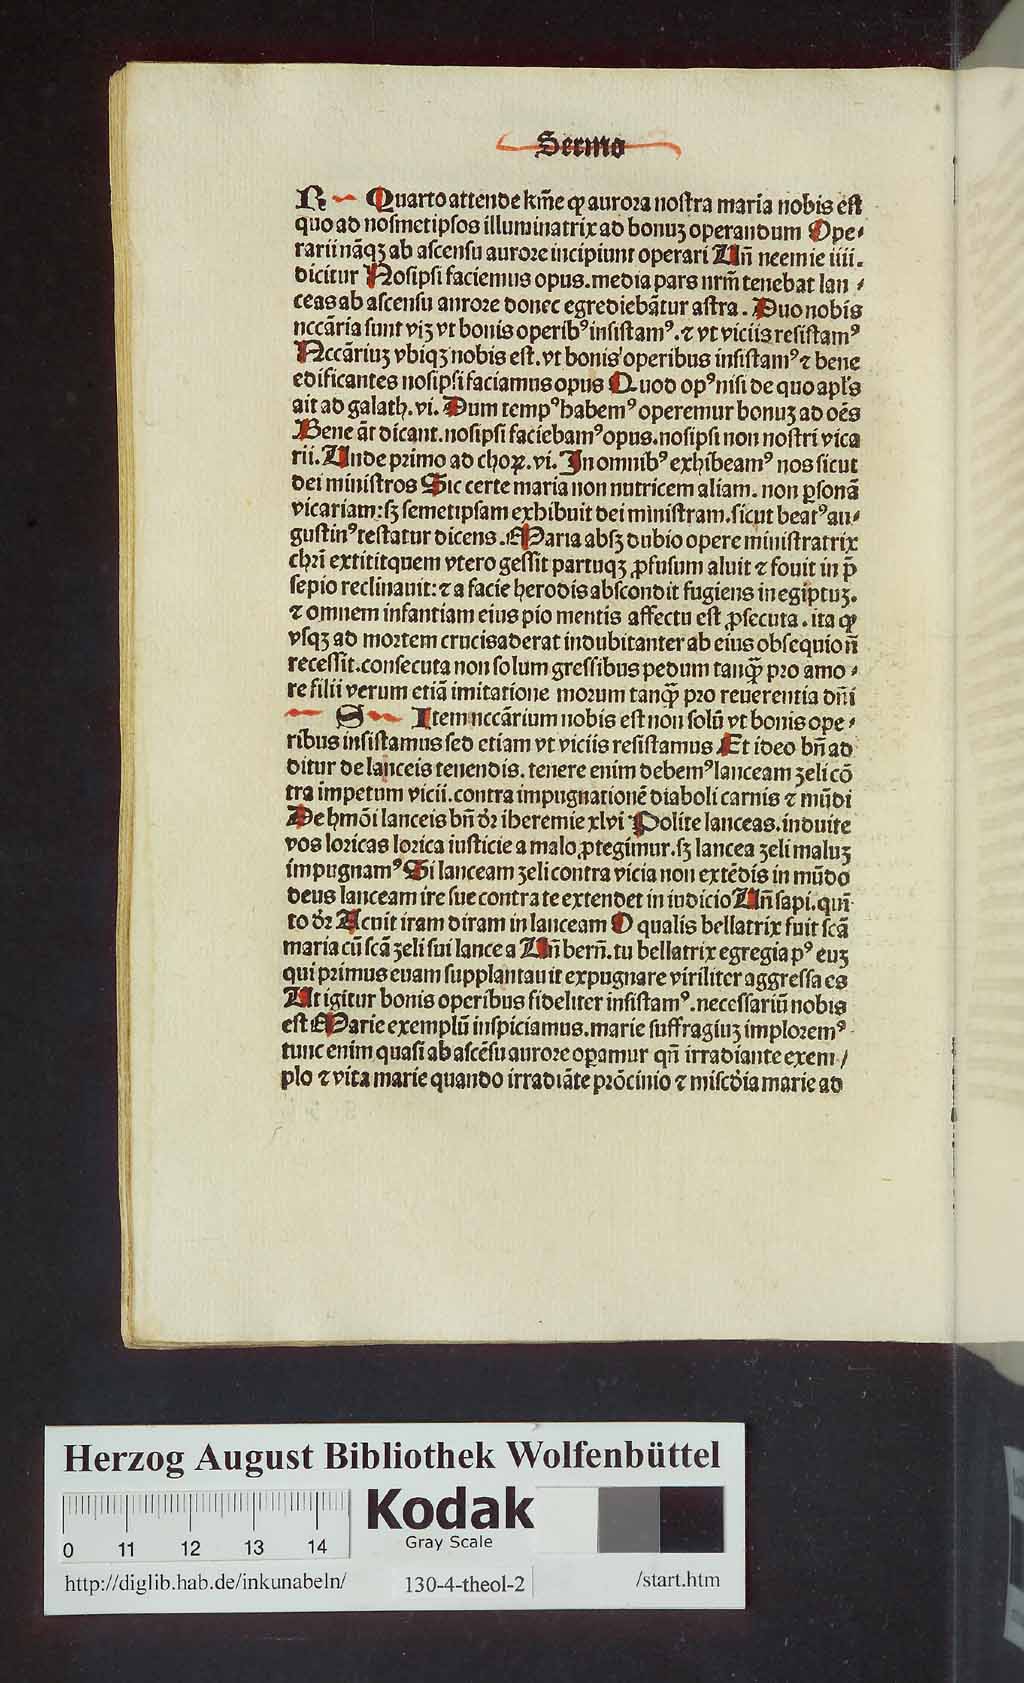 Sermo
R Quarto attende kr̄me ꝙ aurora nostra maria nobis est
quo ad nosmetipsos illuminatrix ad bonuꝫ operandum Ope⸗
rarii nāqꝫ ab ascensu aurore incipiunt operari Un̄ neemie iiii.
dicitur Nosipsi faciemus opus. media pars nrm̄ tenebat lan⸗
ceas ab ascensu anrore donec egrediebātur astra. Duo nobis
nccāria sunt viꝫ vt bonis operibꝰ insistamꝰ. ⁊ vt viciis resistamꝰ
Nccāriuꝫ vbiqꝫ nobis est. vt bonis operibus insistamꝰ ⁊ bene
edificantes nosipsi faciamus opus Quod opꝰ nisi de quo apl's
ait ad galath. vi. Dum tempꝰ habemꝰ operemur bonuꝫ ad oēs
Bene āt dicant. nosipsi faciebamꝰ opus. nosipsi non nostri vica
rii. Unde primo ad choꝝ. vi. In omnibꝰ exhibeamꝰ nos sicut
dei ministros Sic certe maria non nutricem aliam. non ꝑsonā
vicariam: sꝫ semetipsam exhibuit dei ministram. sicut beatꝰ au⸗
gustinꝰ testatur dicens. Maria absꝫ dubio opere ministratrix
chri̅ extititquem vtero gessit partuqꝫ ꝓfusum aluit ⁊ fouit in p̄
sepio reclinauit: ⁊ a facie herodis abscondit fugiens in egiptuꝫ.
⁊ omnem infantiam eius pio mentis affectu est ꝓsecuta. ita ꝙ
vsqꝫ ad mortem crucis aderat indubitanter ab eius obsequio n̄
recessit. consecuta non solum gressibus pedum tanꝙ̄ pro amo⸗
re filii verum etiā imitatione morum tanꝙ̄ pro reuerentia dn̄i
S Item nccārium nobis est non solū vt bonis ope⸗
ribus insistamus sed etiam vt viciis resistamus Et ideo bn̄ ad
ditur de lanceis tenendis. tenere enim debemꝰ lanceam ꝫeli cō
tra impetum vicii. contra impugnationē diaboli carnis ⁊ mūdi
De hmōi lanceis bn̄ dꝛ iheremie xlvi Polite lanceas. induite
vos loricas lorica iusticie a malo ꝓtegimur. sꝫ lancea ꝫeli maluꝫ
impugnamꝰ Si lanceam ꝫeli contra vicia non extēdis in mūdo
deus lanceam ire sue contra te extendet in iudicio Un̄ sapi. quī
to dꝛ Acuit iram diram in lanceam O qualis bellatrix fuit scā
maria cū scā ꝫeli sui lance a Un̄ bern̄. tu bellatrix egregia pꝰ euꝫ
qui primus euam supplantauit expugnare viriliter aggressa es
Ut igitur bonis operibus fideliter insistamꝰ. necessariū nobis
est Marie exemplū inspiciamus. marie suffragiuꝫ imploremꝰ
tunc enim quasi ab ascēsu aurore oꝑamur qn̄ irradiante exem/
plo ⁊ vita marie quando irradiāte prōcinio ⁊ miscdia marie ad
Herzog August Bibliothek Wolfenbüttel
Kodak
Gray Scale
0 11 12 13 14
http://diglib.hab.de/inkunabeln/ 130-4-theol-2 /start.htm